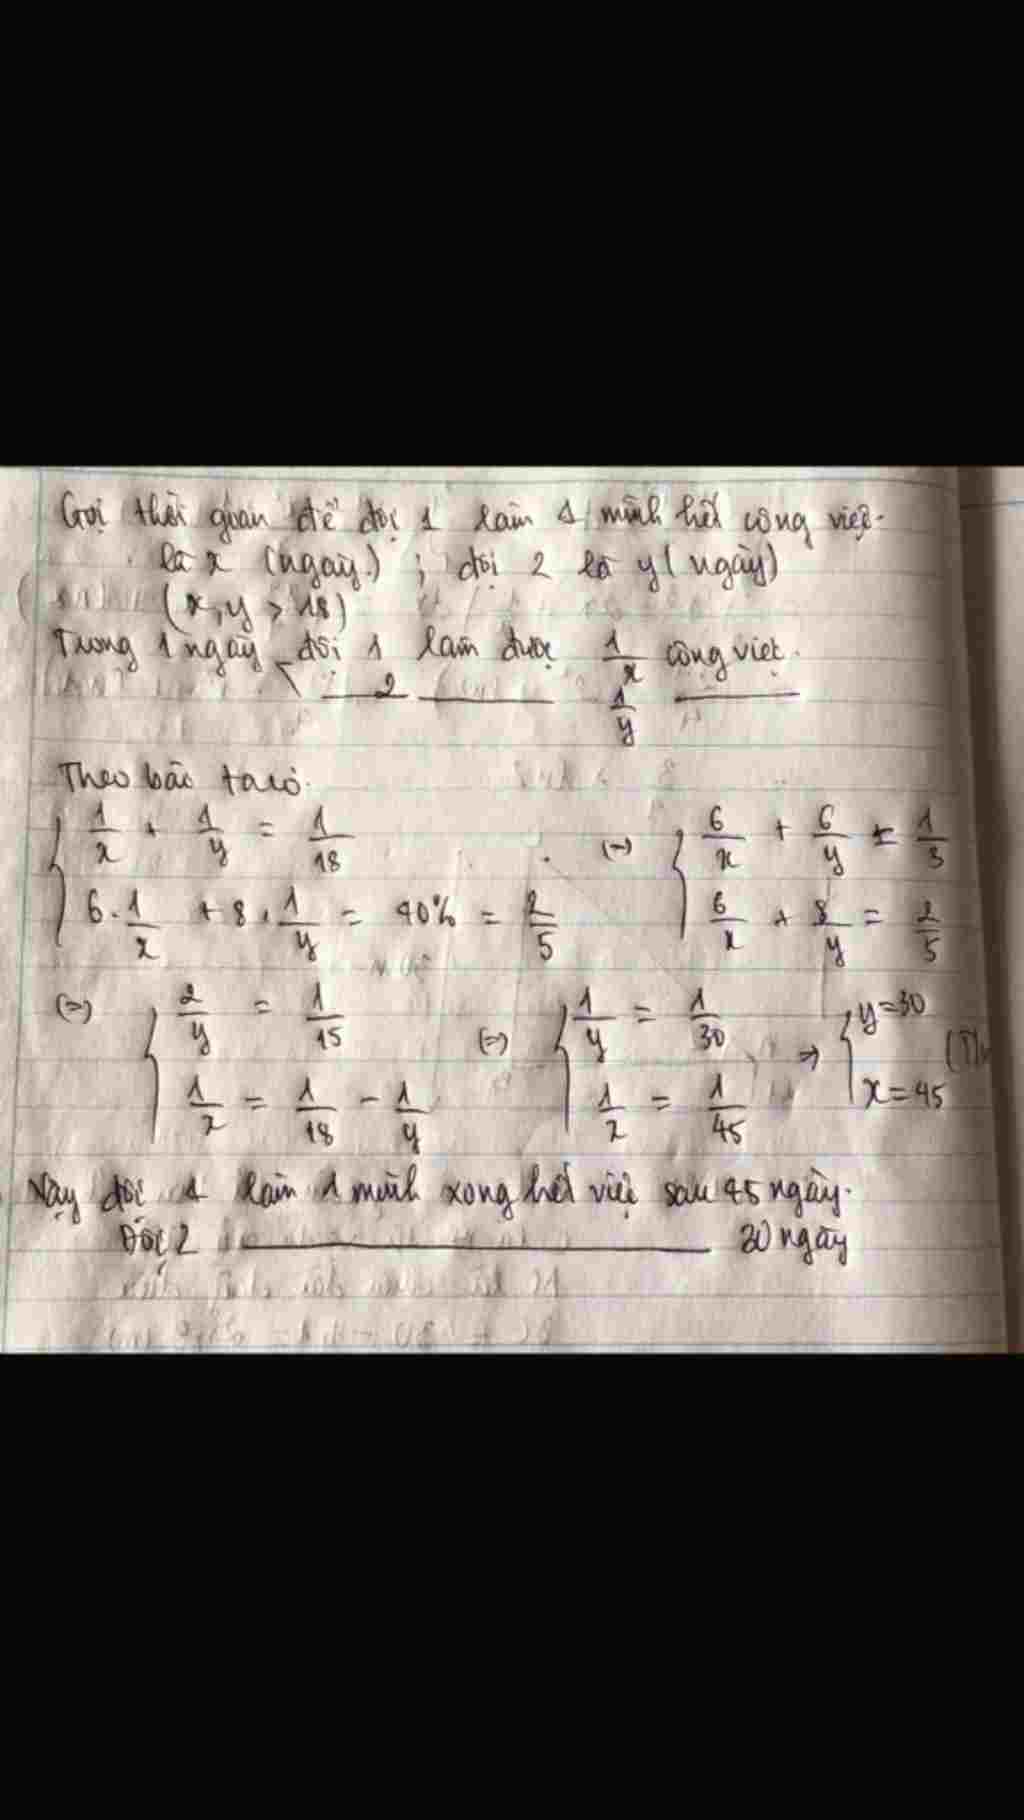 Gọi thời gian để đội 1 làm 1 mình hết công việc.
là x (ngày) ; đội 2 là y (ngày)
(x, y > 18)
Trong 1 ngày đội 1 làm được 1/x công việc.
2 1/y
Theo bài ta có.
{ 1/x + 1/y = 1/18 (=) { 6/x + 6/y = 1/3
6 . 1/x + 8 . 1/y = 40% = 2/5 6/x + 8/y = 2/5
(=) { 2/y = 1/15 (=) { 1/y = 1/30 => { y = 30
1/x = 1/18 - 1/y 1/x = 1/45 x = 45
Vậy đội 1 làm 1 mình xong hết việc sau 45 ngày.
Đội 2 30 ngày